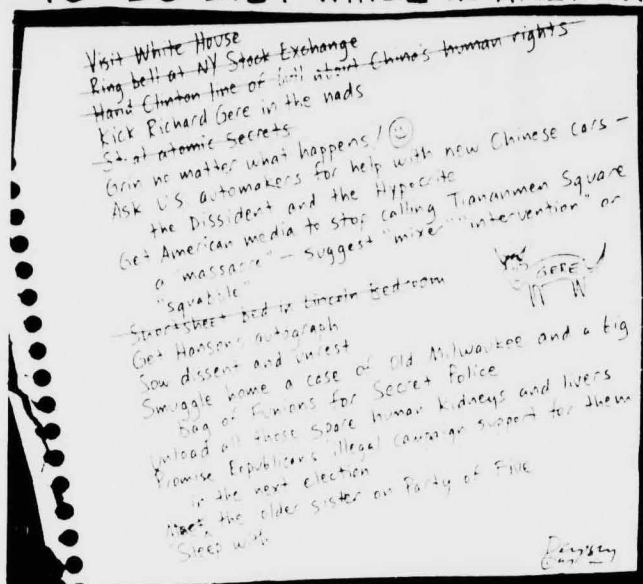 TO DO LIST WHILE IN
Visit White House
Ring bell at NY Stock Exchange
Hand Clinton line of bull about China's human rights
Kick Richard Gere in the nads
Steal atomic secrets
Grin no matter what happens!
Ask U.S. automakers for help with new Chinese cars –
the Dissident and the Hypocrite
Get American media to stop calling Tiananmen Square
a "massacre" – suggest "mixer" "intervention" or
"squabble"
GERE
Shortsheet bed in Lincoln Bedroom
Get Hanson's autograph
Sow dissent and unrest
Smuggle home a case of Old Milwaukee and a big
Bag of Funions for Secret Police
Unload all those spare human kidneys and livers
Promise Republicans illegal campaign support for them
in the next election
Meet the older sister on Party of Five
Sleep with